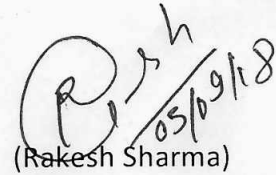 05/09/18
(Rakesh Sharma)